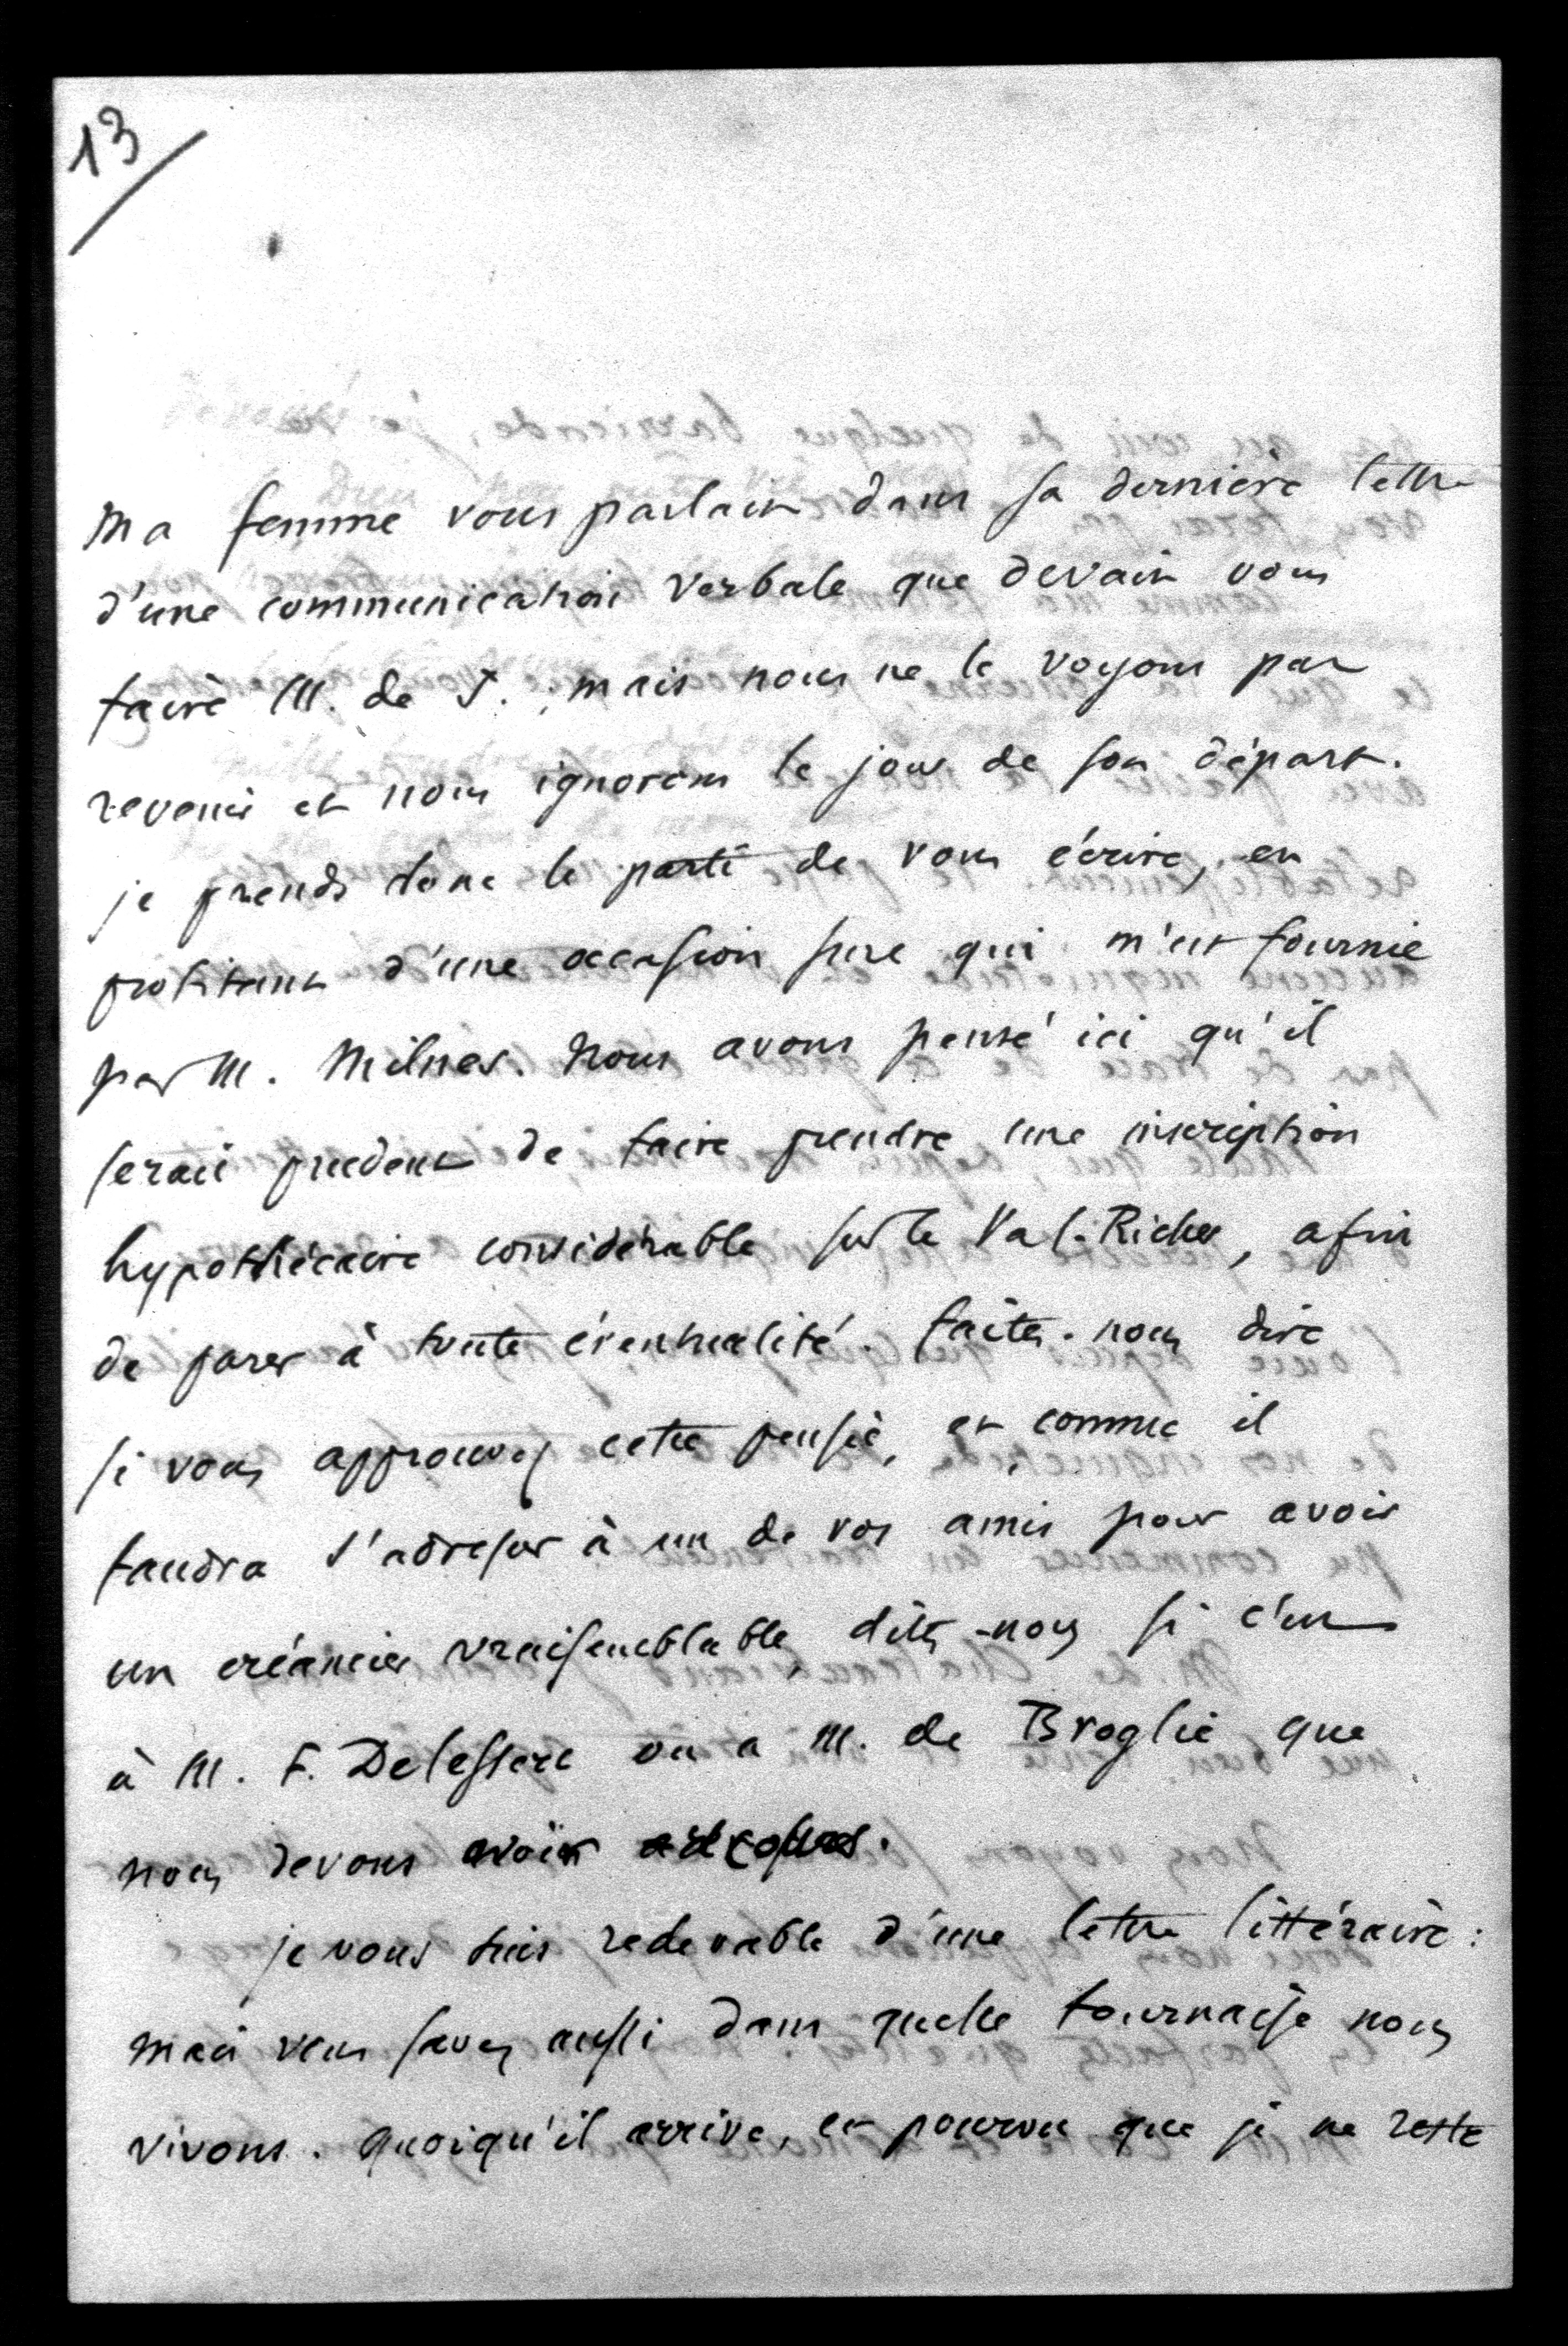 13
Ma femme vous parlait dans sa dernière lettre
d'une communication verbale que devait vous
faire M. de S. ; mais nous ne le voyons pas
revenir et nous ignorons le jour de son départ.
je prends donc le parti de vous écrire, en
profitant d'une occasion sure qui m'est fournie
par M. Milnes. Nous avons pensé ici qu'il
serait prudent de faire prendre une inscription
hypothécaire considérable sur le Val-Richer, afin
de parer à toute éventualité. faites-nous dire
si vous approuvez cette pensée, et comme il
faudra s'adresser à un de vos amis pour avoir
un créancier vraisemblable, dites-nous si c'est
à M. F. Delessert ou a M. de Broglie que
nous devons avoir
je vous suis redevable d'une lettre littéraire :
mais vous savez aussi dans quelle fournaise nous
vivons. Quoiqu'il arrive, et pourvu que je ne reste